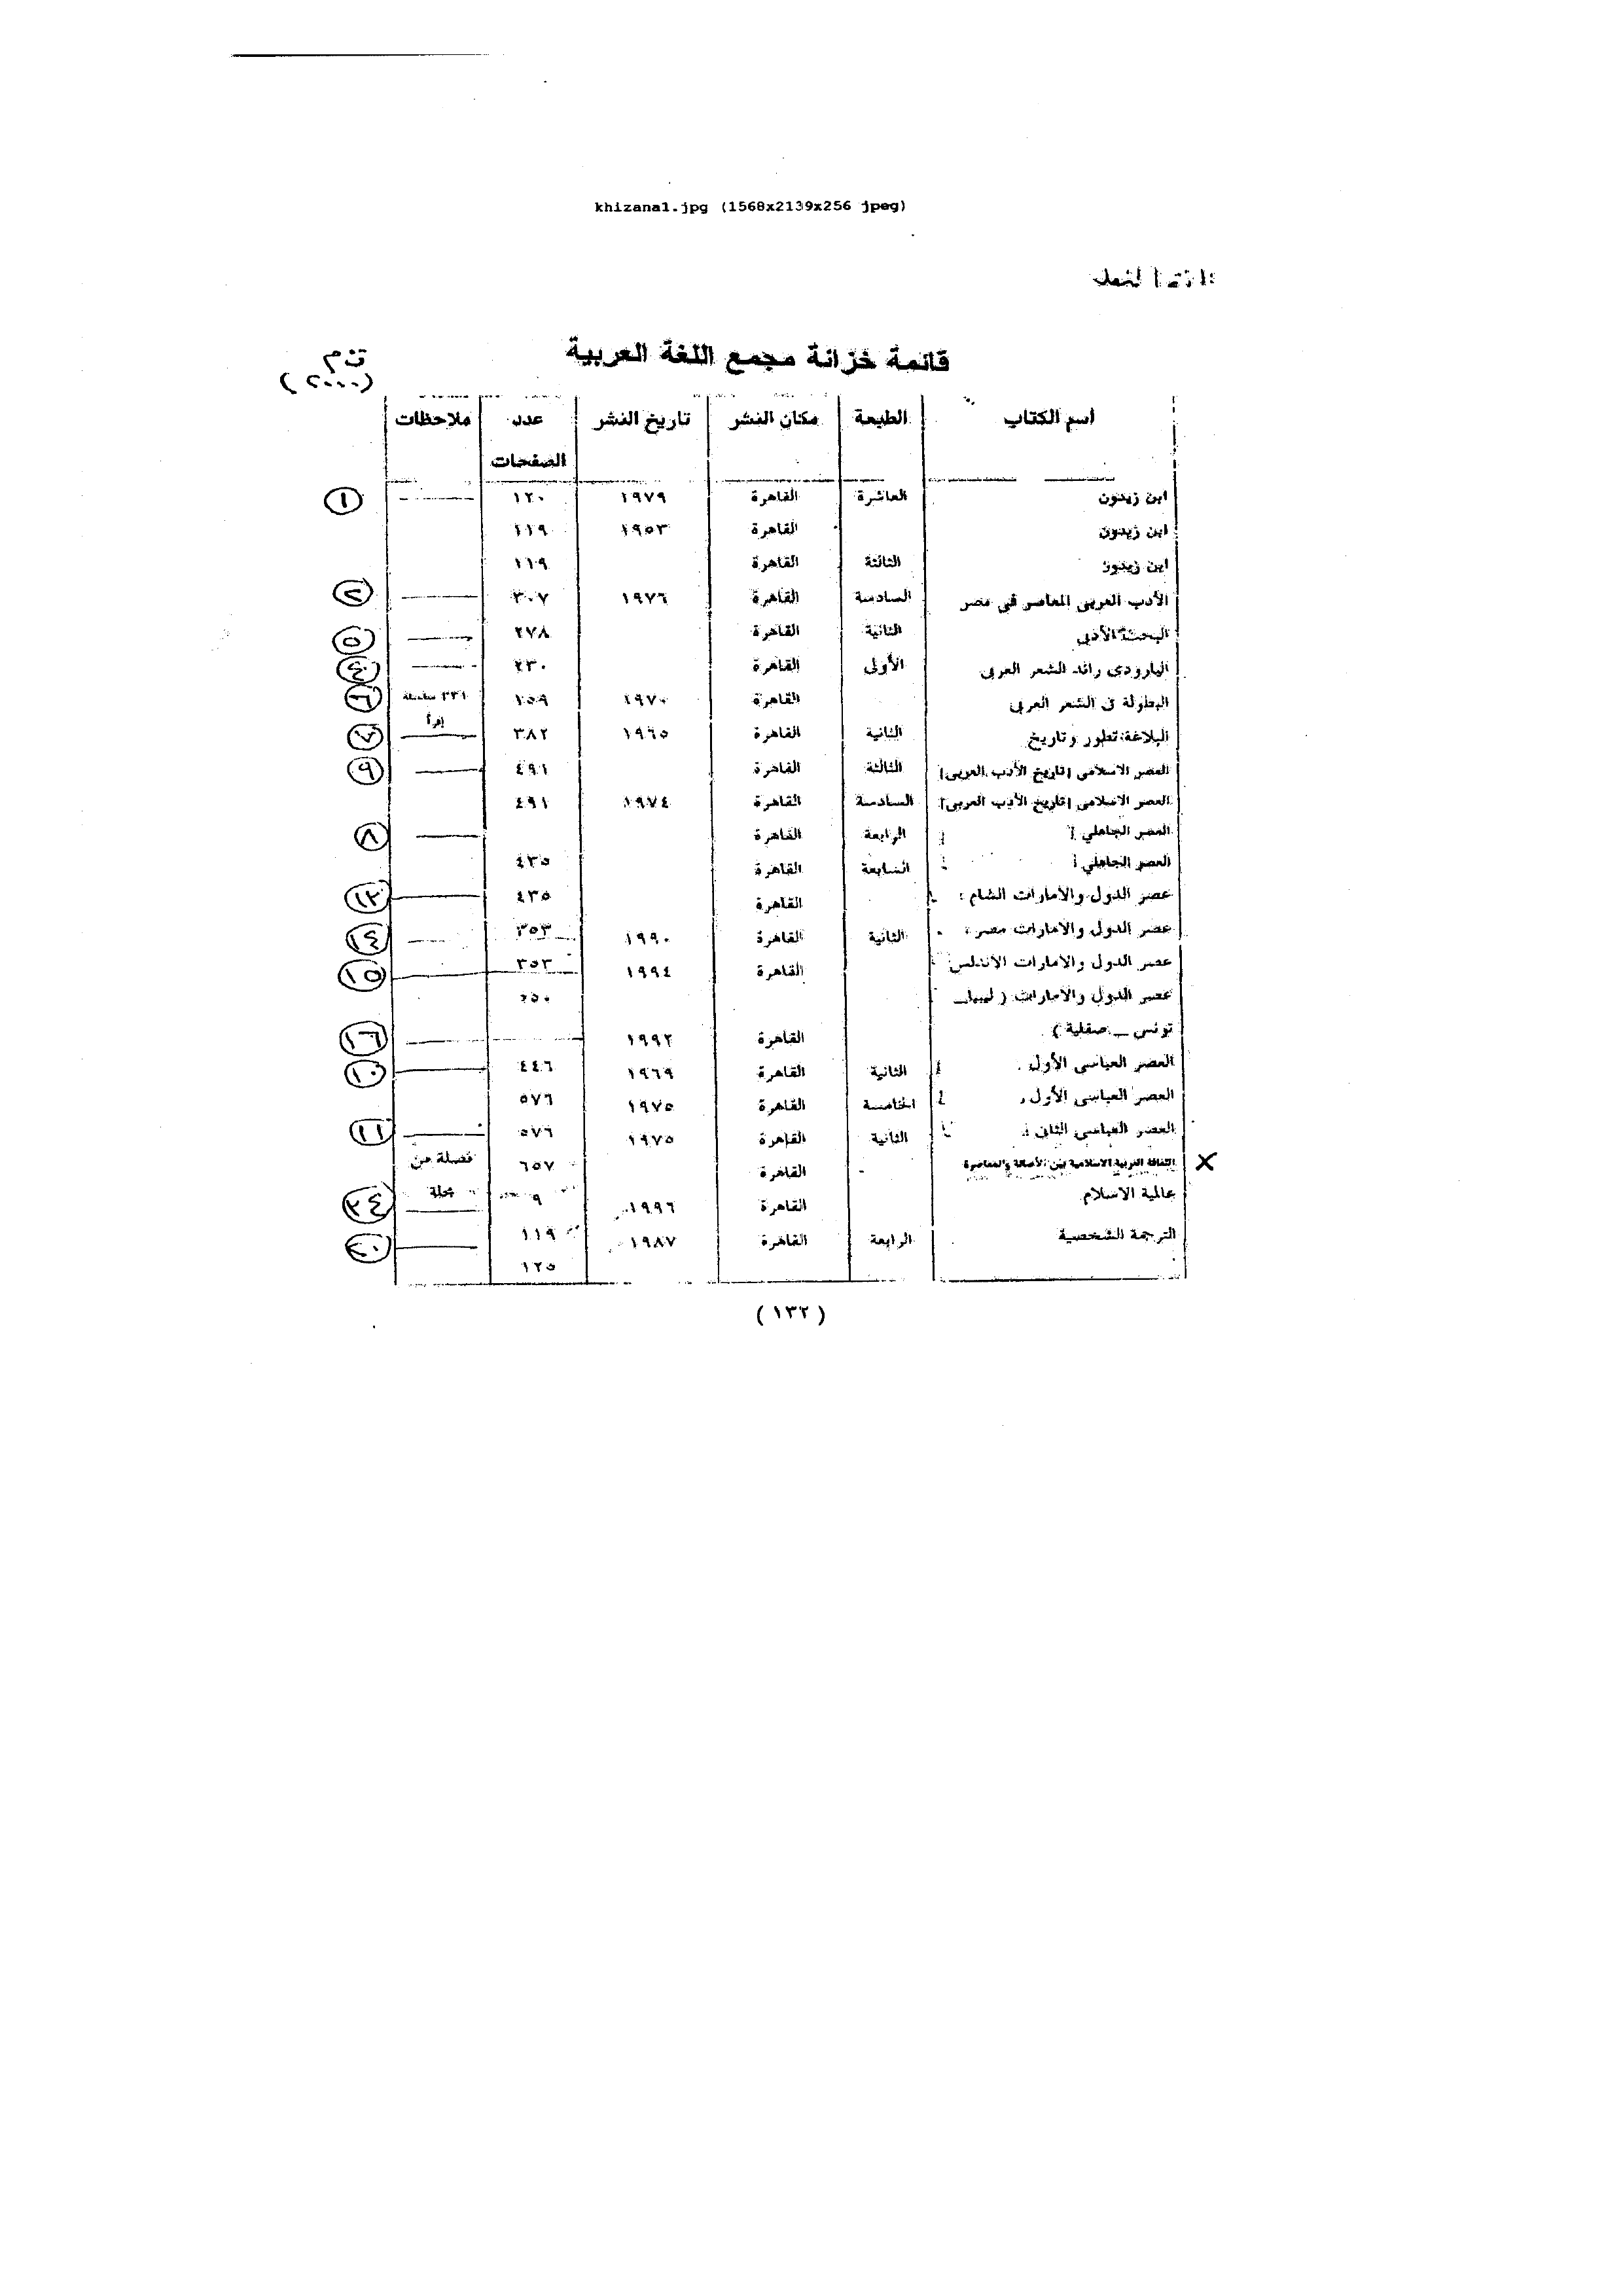 khizana1.jpg (1568x2139x256 jpeg)
قائمة خزانة مجمع اللغة العربية
(٢٠٠٠)
اسم الكتاب الطبعة مكان النشر تاريخ النشر عدد ملاحظات
الصفحات
ابن زيدون العاشرة القاهرة ١٩٧٩ ١٢٠ ١
ابن زيدون القاهرة ١٩٥٣ ١١٩
ابن زيدون الثالثة القاهرة ١١٩
الأدب العربى المعاصر فى مصر السادسة القاهرة ١٩٧٦ ٣٠٧ ٢
البحث الأدبى الثانية القاهرة ٢٧٨ ٥
البارودى رائد الشعر العربى الأولى القاهرة ٢٣٠ ٤
البطولة فى الشعر العربى القاهرة ١٩٧٠ ١٥٩ ٣٣١ سلسلة ٦
إقرأ
البلاغة: تطور وتاريخ الثانية القاهرة ١٩٦٥ ٣٨٢ ٧
العصر الاسلامى [تاريخ الأدب العربى] الثالثة القاهرة ٤٩١ ٩
العصر الاسلامى [تاريخ الأدب العربى] السادسة القاهرة ١٩٧٤ ٤٩١
العصر الجاهلي الرابعة القاهرة ٨
العصر الجاهلي السابعة القاهرة ٤٣٥
عصر الدول والامارات الشام القاهرة ٤٣٥ ١٣
عصر الدول والامارات مصر الثانية القاهرة ١٩٩٠ ٣٥٣ ١٤
عصر الدول والامارات الاندلس القاهرة ١٩٩٤ ٣٥٣ ١٥
عصر الدول والامارات ( ليبيا ــ
تونس ــ صقلية ) القاهرة ١٩٩٢ ١٦
العصر العباسى الأول الثانية القاهرة ١٩٦٩ ٤٤٦ ١٠
العصر العباسى الأول الخامسة القاهرة ١٩٧٥ ٥٧٦
العصر العباسى الثانى الثانية القاهرة ١٩٧٥ ٥٧٦ ١١
الثقافة العربية الاسلامية بين الأصالة والمعاصرة القاهرة ٦٥٧ فصلة من
عالمية الاسلام القاهرة ١٩٩٦ ٩ مجلة ٣٤
الترجمة الشخصية الرابعة القاهرة ١٩٨٧ ١١٩ ٢٠
١٢٥
( ١٣٢ )